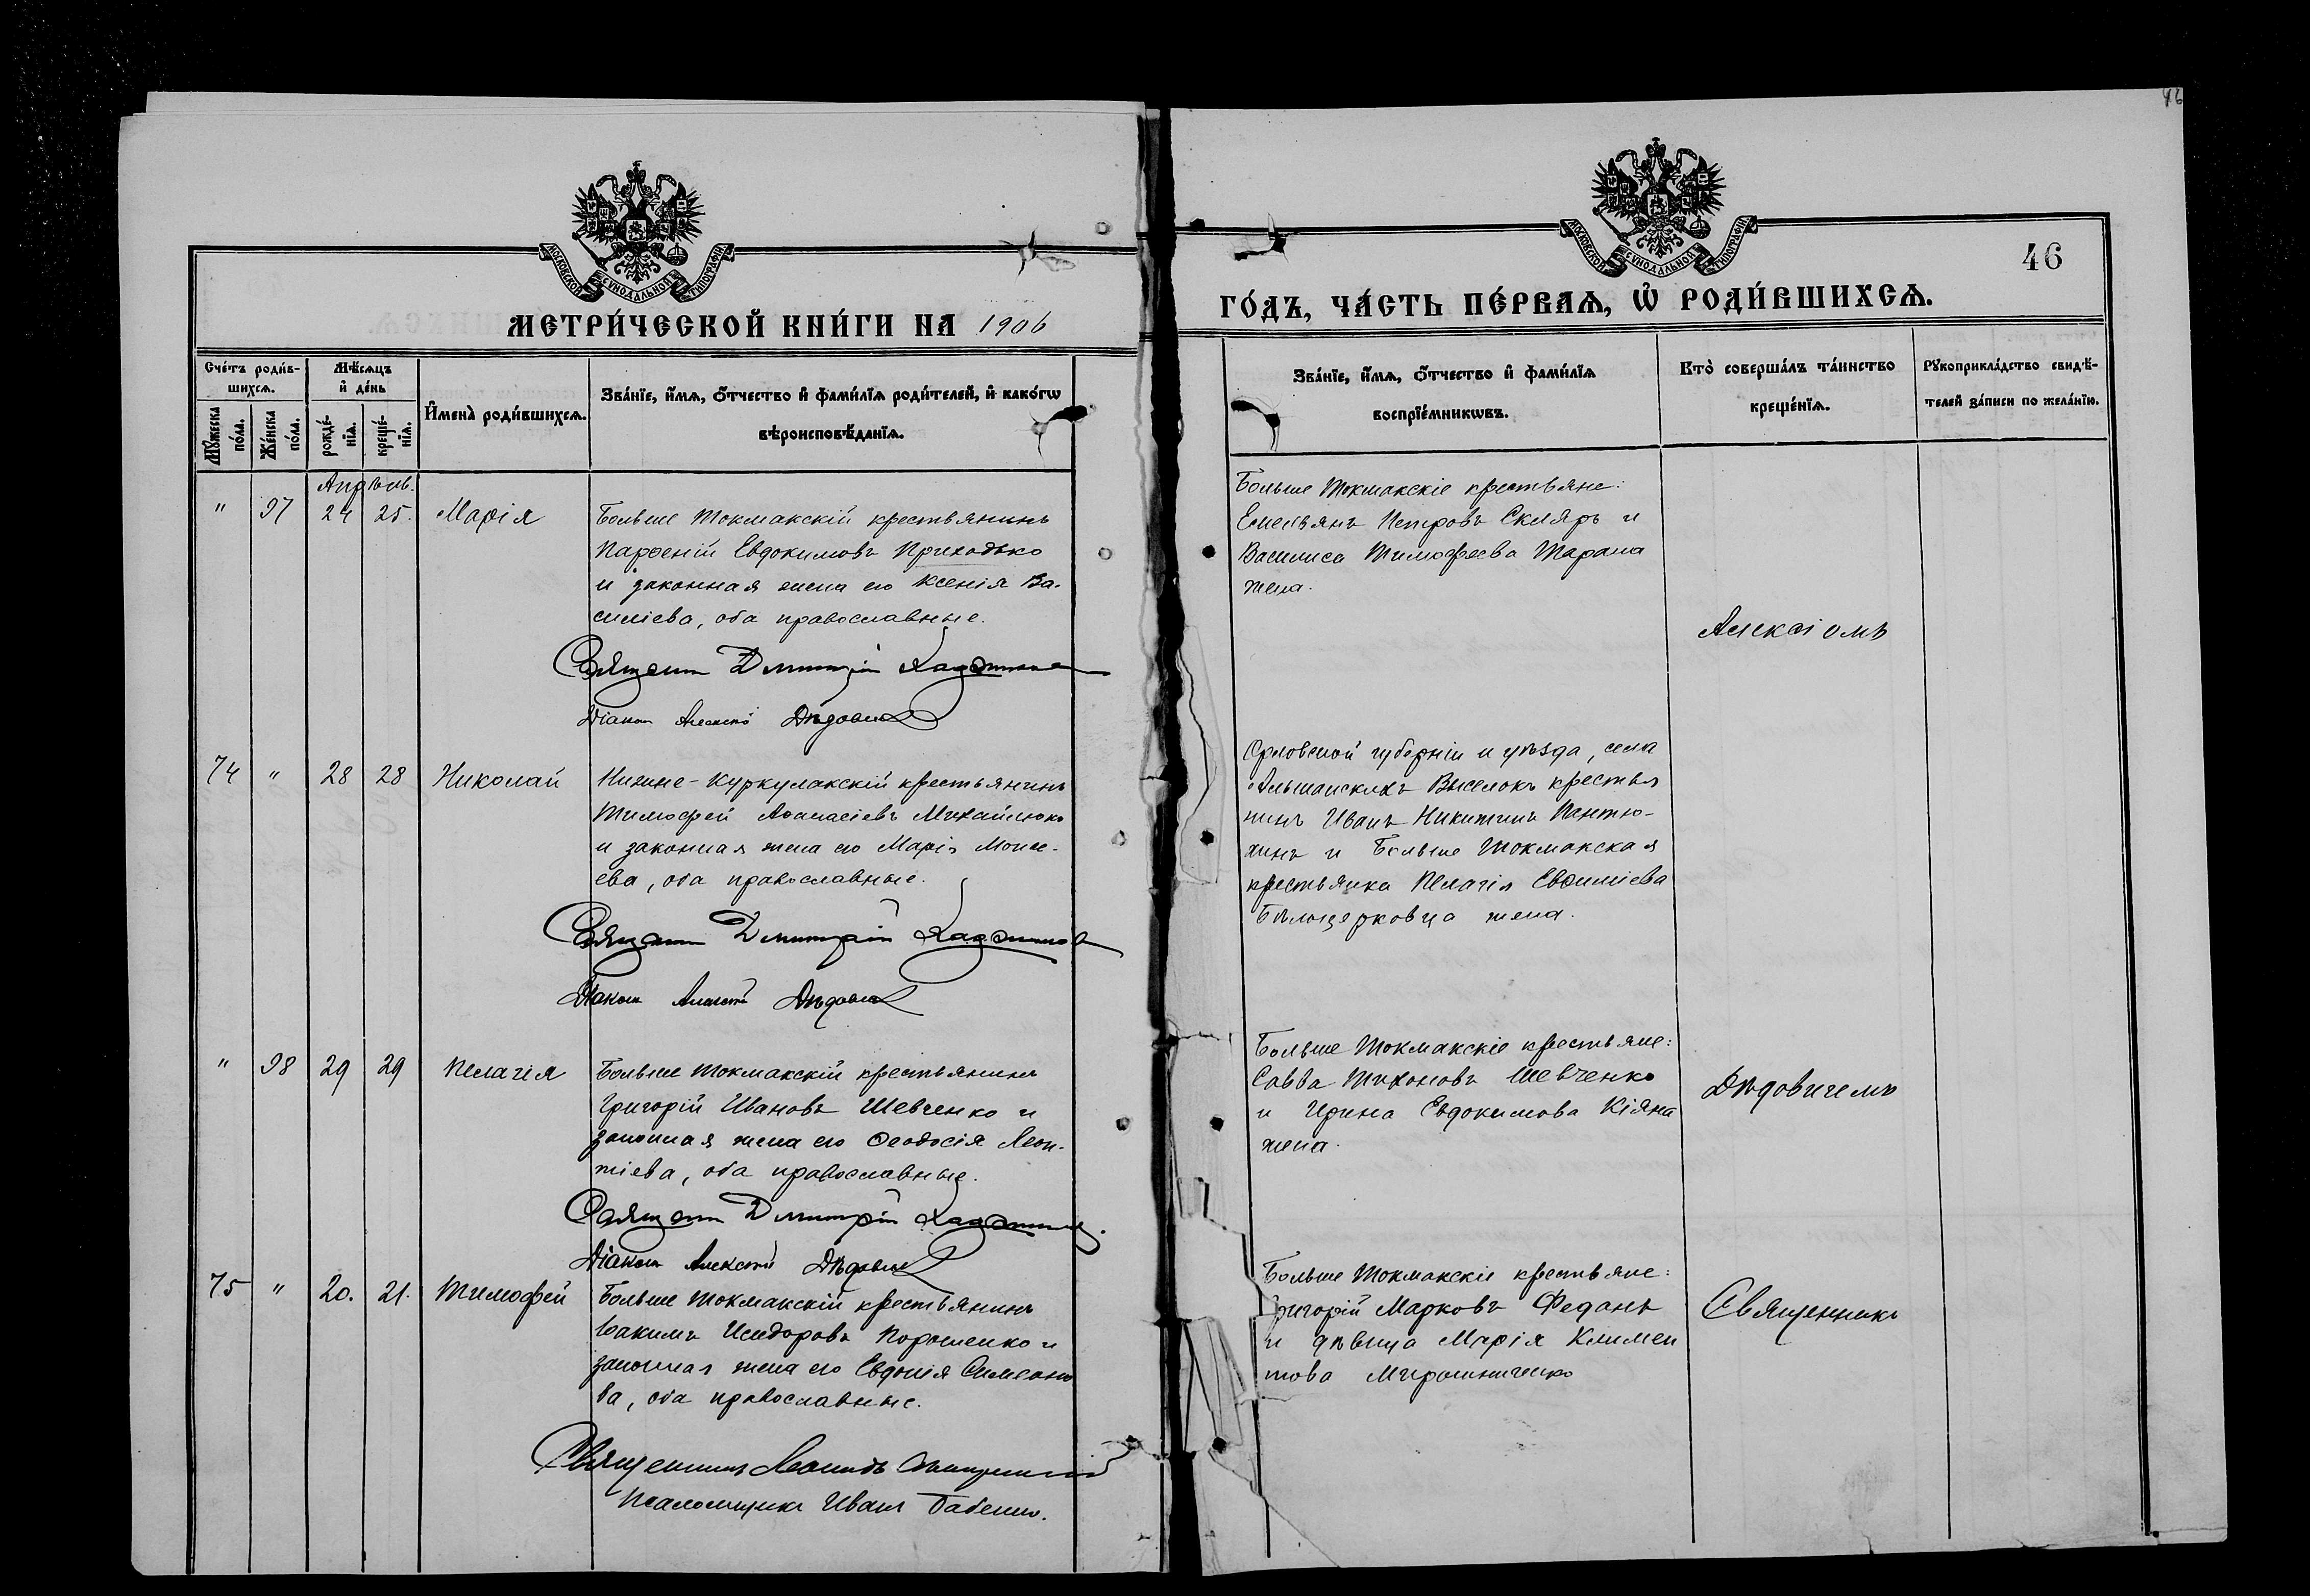 46
МОСКОВСКОЙ СѴНОДАЛЬНОЙ ТИПОГРАФІИ
МЕТРИ́ЧЕСКОЙ КНИ́ГИ НА 1906
Сче́тъ роди́в-
шихсѧ.
Мѣ́сѧцъ
и҆ де́нь
Мꙋ́жеска
по́ла.
Же́нска
по́ла.
рожде́-
нїѧ.
креще́-
нїѧ.
И҆мена̀ роди́вшихсѧ.
Зва́нїе, и҆́мѧ, ѻ҆́тчество и҆ фами́лїѧ роди́телей, и҆ како́гѡ
вѣроисповѣ́данїѧ.
Апрѣль.
" 97 24 25. Марія
Больше Токмакскій крестьянинъ
Парѳеній Евдокимовъ Приходько
и законная жена его Ксенія Ва-
силіева, оба православные.
Священ Димитрій
Діакон Алексій Дѣдович
74 " 28 28 Николай
Нижне-Куркулакскій крестьянинъ
Тимофей Аѳанасіевъ Михайлюкъ
и законная жена его Марія Моисе-
ева, оба православные.
Священ Димитрій
Діакон Алексій Дѣдович
" 98 29 29 Пелагія
Больше Токмакскій крестьянинъ
Григорій Ивановъ Шевченко и
законная жена его Ѳеодосія Леон-
тіева, оба православные.
Священ Димитрій
Діакон Алексій Дѣдович
75 " 20. 21. Тимофей
Больше Токмакскій крестьянинъ
Іоакимъ Исидоровъ Порошенко и
законная жена его Евдокія Симеоно
ва, оба православные.
Священникъ Леонидъ
Псаломщикъ Иванъ Бабенко.
МОСКОВСКОЙ СѴНОДАЛЬНОЙ ТИПОГРАФІИ
46
ГО́ДЪ, ЧА́СТЬ ПЕ́РВАѦ, Ѡ҆ РОДИ́ВШИХСѦ.
Зва́нїе, и҆́мѧ, ѻ҆́тчество и҆ фами́лїѧ
воспрїе́мникѡвъ.
Кто̀ соверша́лъ та́инство
креще́нїѧ.
Рꙋкоприкла́дство свидѣ́-
телей за́писи по жела́нїю.
Больше Токмакскіе крестьяне:
Емельянъ Петровъ Скляръ и
Василиса Тимофеева Тарана
жена.
Алексіомъ
Орловской губерніи и уѣзда, села
Альшанскихъ Выселокъ крестья
нинъ Иванъ Никитинъ Пантю-
хинъ и Больше Токмакская
крестьянка Пелагія Евфиміева
Бѣлоцерковца жена.
Больше Токмакскіе крестьяне:
Савва Тихоновъ Шевченко
и Ирина Евдокимова Кіяна
жена.
Дѣдовичемъ
Больше Токмакскіе крестьяне:
Григорій Марковъ Феданъ
и дѣвица Марія Климен
това Мирошниченко
Священникъ